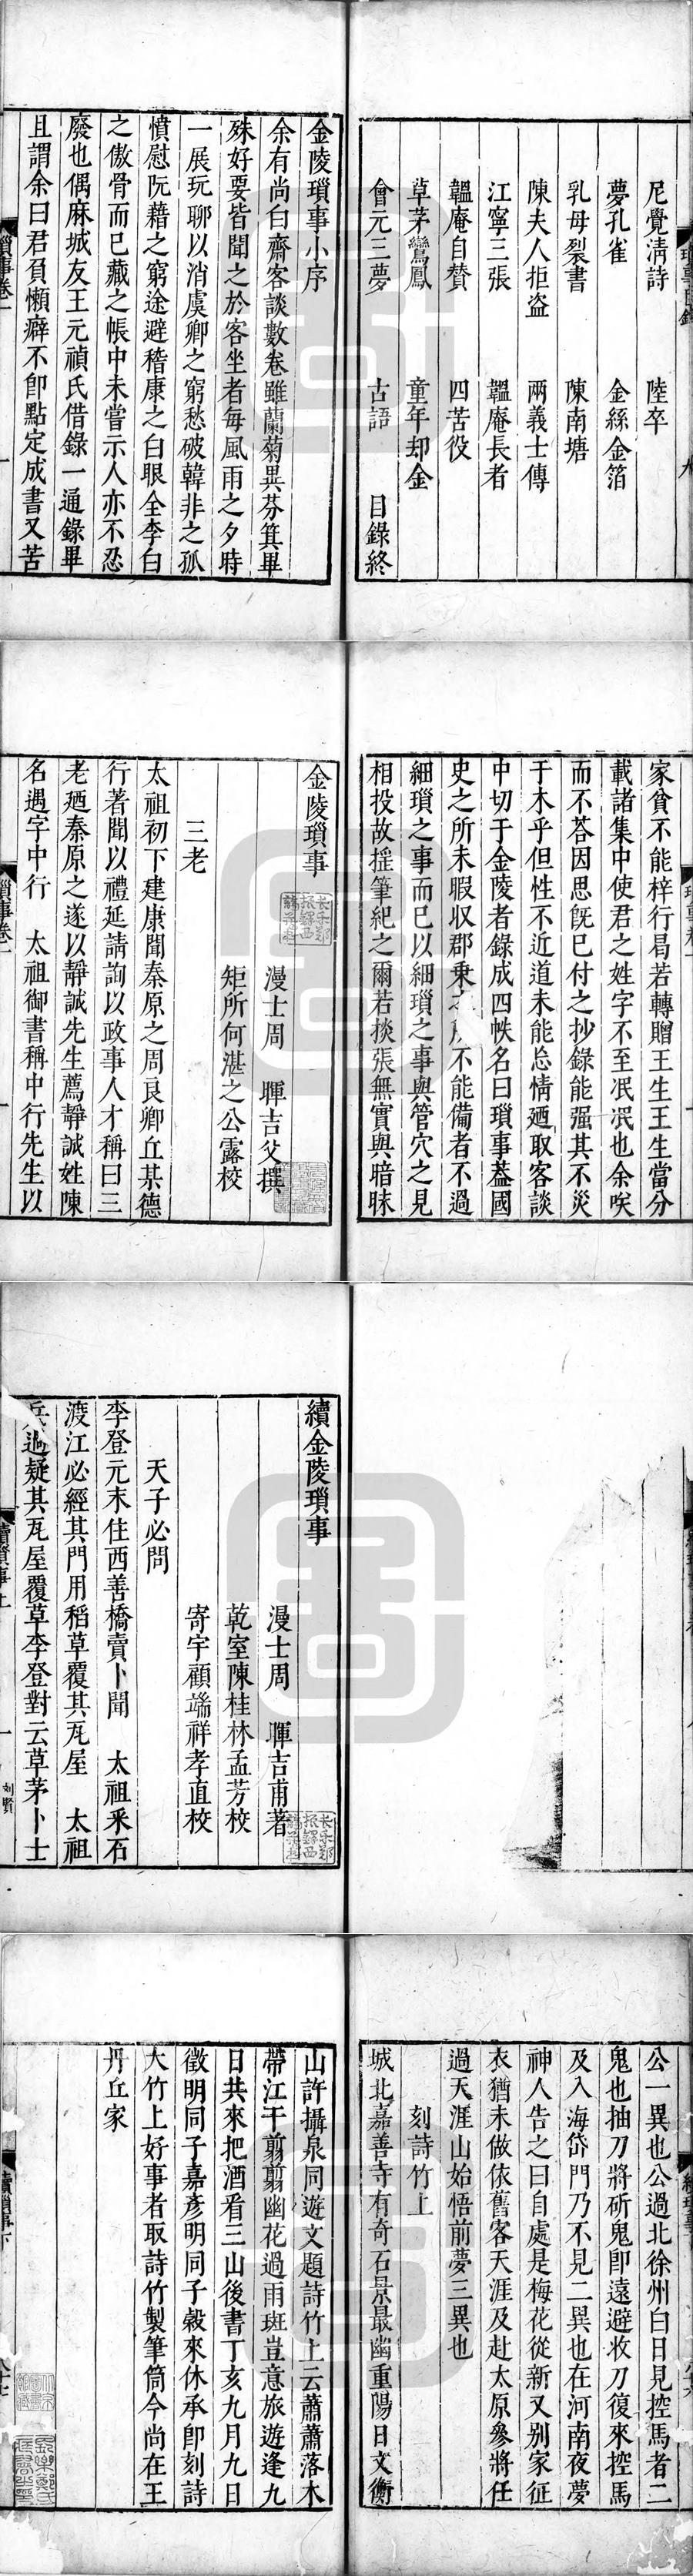 尼覺清詩 陸卒
夢孔雀 金絲金箔
乳母裂書 陳南塘
陳夫人拒盜 兩義士傳
江寧三張 韞庵長者
韞庵自贊 四苦役
草茅鸞鳳 童年却金
會元三夢 古語 目錄終
金陵瑣事小序
余有尚白齋客談數卷雖蘭菊異芬箕畢
殊好要皆聞之於客坐者每風雨之夕時
一展玩聊以消虞卿之窮愁破韓非之孤
憤慰阮藉之窮途避稽康之白眼全李白
之傲骨而已藏之帳中未嘗示人亦不忍
廢也偶麻城友王元禎氏借錄一通錄畢
且謂余曰君負懶癖不即點定成書又苦
瑣事卷一 一
家貧不能梓行曷若轉贈王生王生當分
載諸集中使君之姓字不至泯泯也余唉
而不荅因思旣已付之抄錄能强其不災
于木乎但性不近道未能忘情廼取客談
中切于金陵者錄成四帙名曰瑣事葢國
史之所未暇収郡乗之所不能備者不過
細瑣之事而已以細瑣之事與管穴之見
相投故揺筆紀之爾若掞張無實與暗昧
金陵瑣事
漫士周 暉吉父撰
矩所何湛之公露校
三老
太祖初下建康聞秦原之周良卿丘某德
行著聞以禮延請詢以政事人才稱曰三
老廼秦原之遂以靜誠先生薦靜誠姓陳
名遇字中行 太祖御書稱中行先生以
瑣事卷一 一
續金陵瑣事
漫士周 暉吉甫著
乾室陳桂林孟芳校
寄宇顧端祥孝直校
天子必問
李登元末住西善橋賣卜聞 太祖釆石
渡江必經其門用稻草覆其瓦屋 太祖
兵過疑其瓦屋覆草李登對云草茅卜士
續瑣事上 一 刘賢
公一異也公過北徐州白日見控馬者二
鬼也抽刀將斫鬼即遠避收刀復來控馬
及入海岱門乃不見二異也在河南夜夢
神人告之曰自處是梅花從新又別家征
衣猶未做依舊客天涯及赴太原參將任
過天涯山始悟前夢三異也
刻詩竹上
城北嘉善寺有奇石景最幽重陽日文衡
山許攝泉同遊文題詩竹上云蕭蕭落木
帶江干翦翦幽花過雨斑豈意旅遊逢九
日共來把酒看三山後書丁亥九月九日
徵明同子嘉彥明同子穀來休承即刻詩
大竹上好事者取詩竹製筆筒今尚在王
丹丘家
續瑣事下